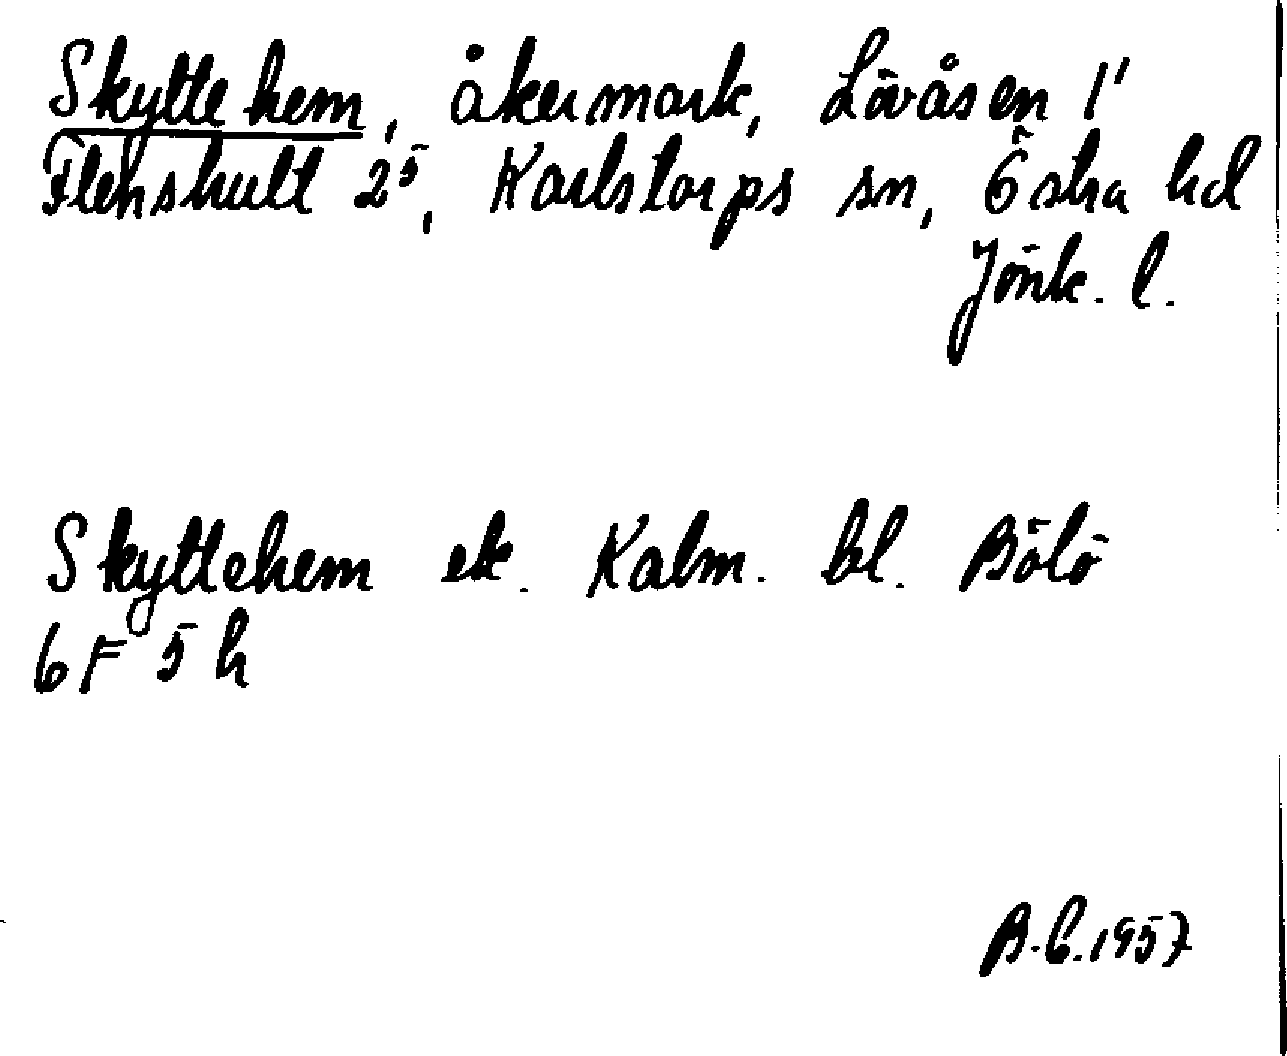 Skyttehem, åkermark, Lövåsen 1'
Flenshult 2⁵, Karlstorps sn, Östra hd
Jönk. l.
Skyttehem ek. Kalm. bl. Bölö
6F 5h
B.C. 1957